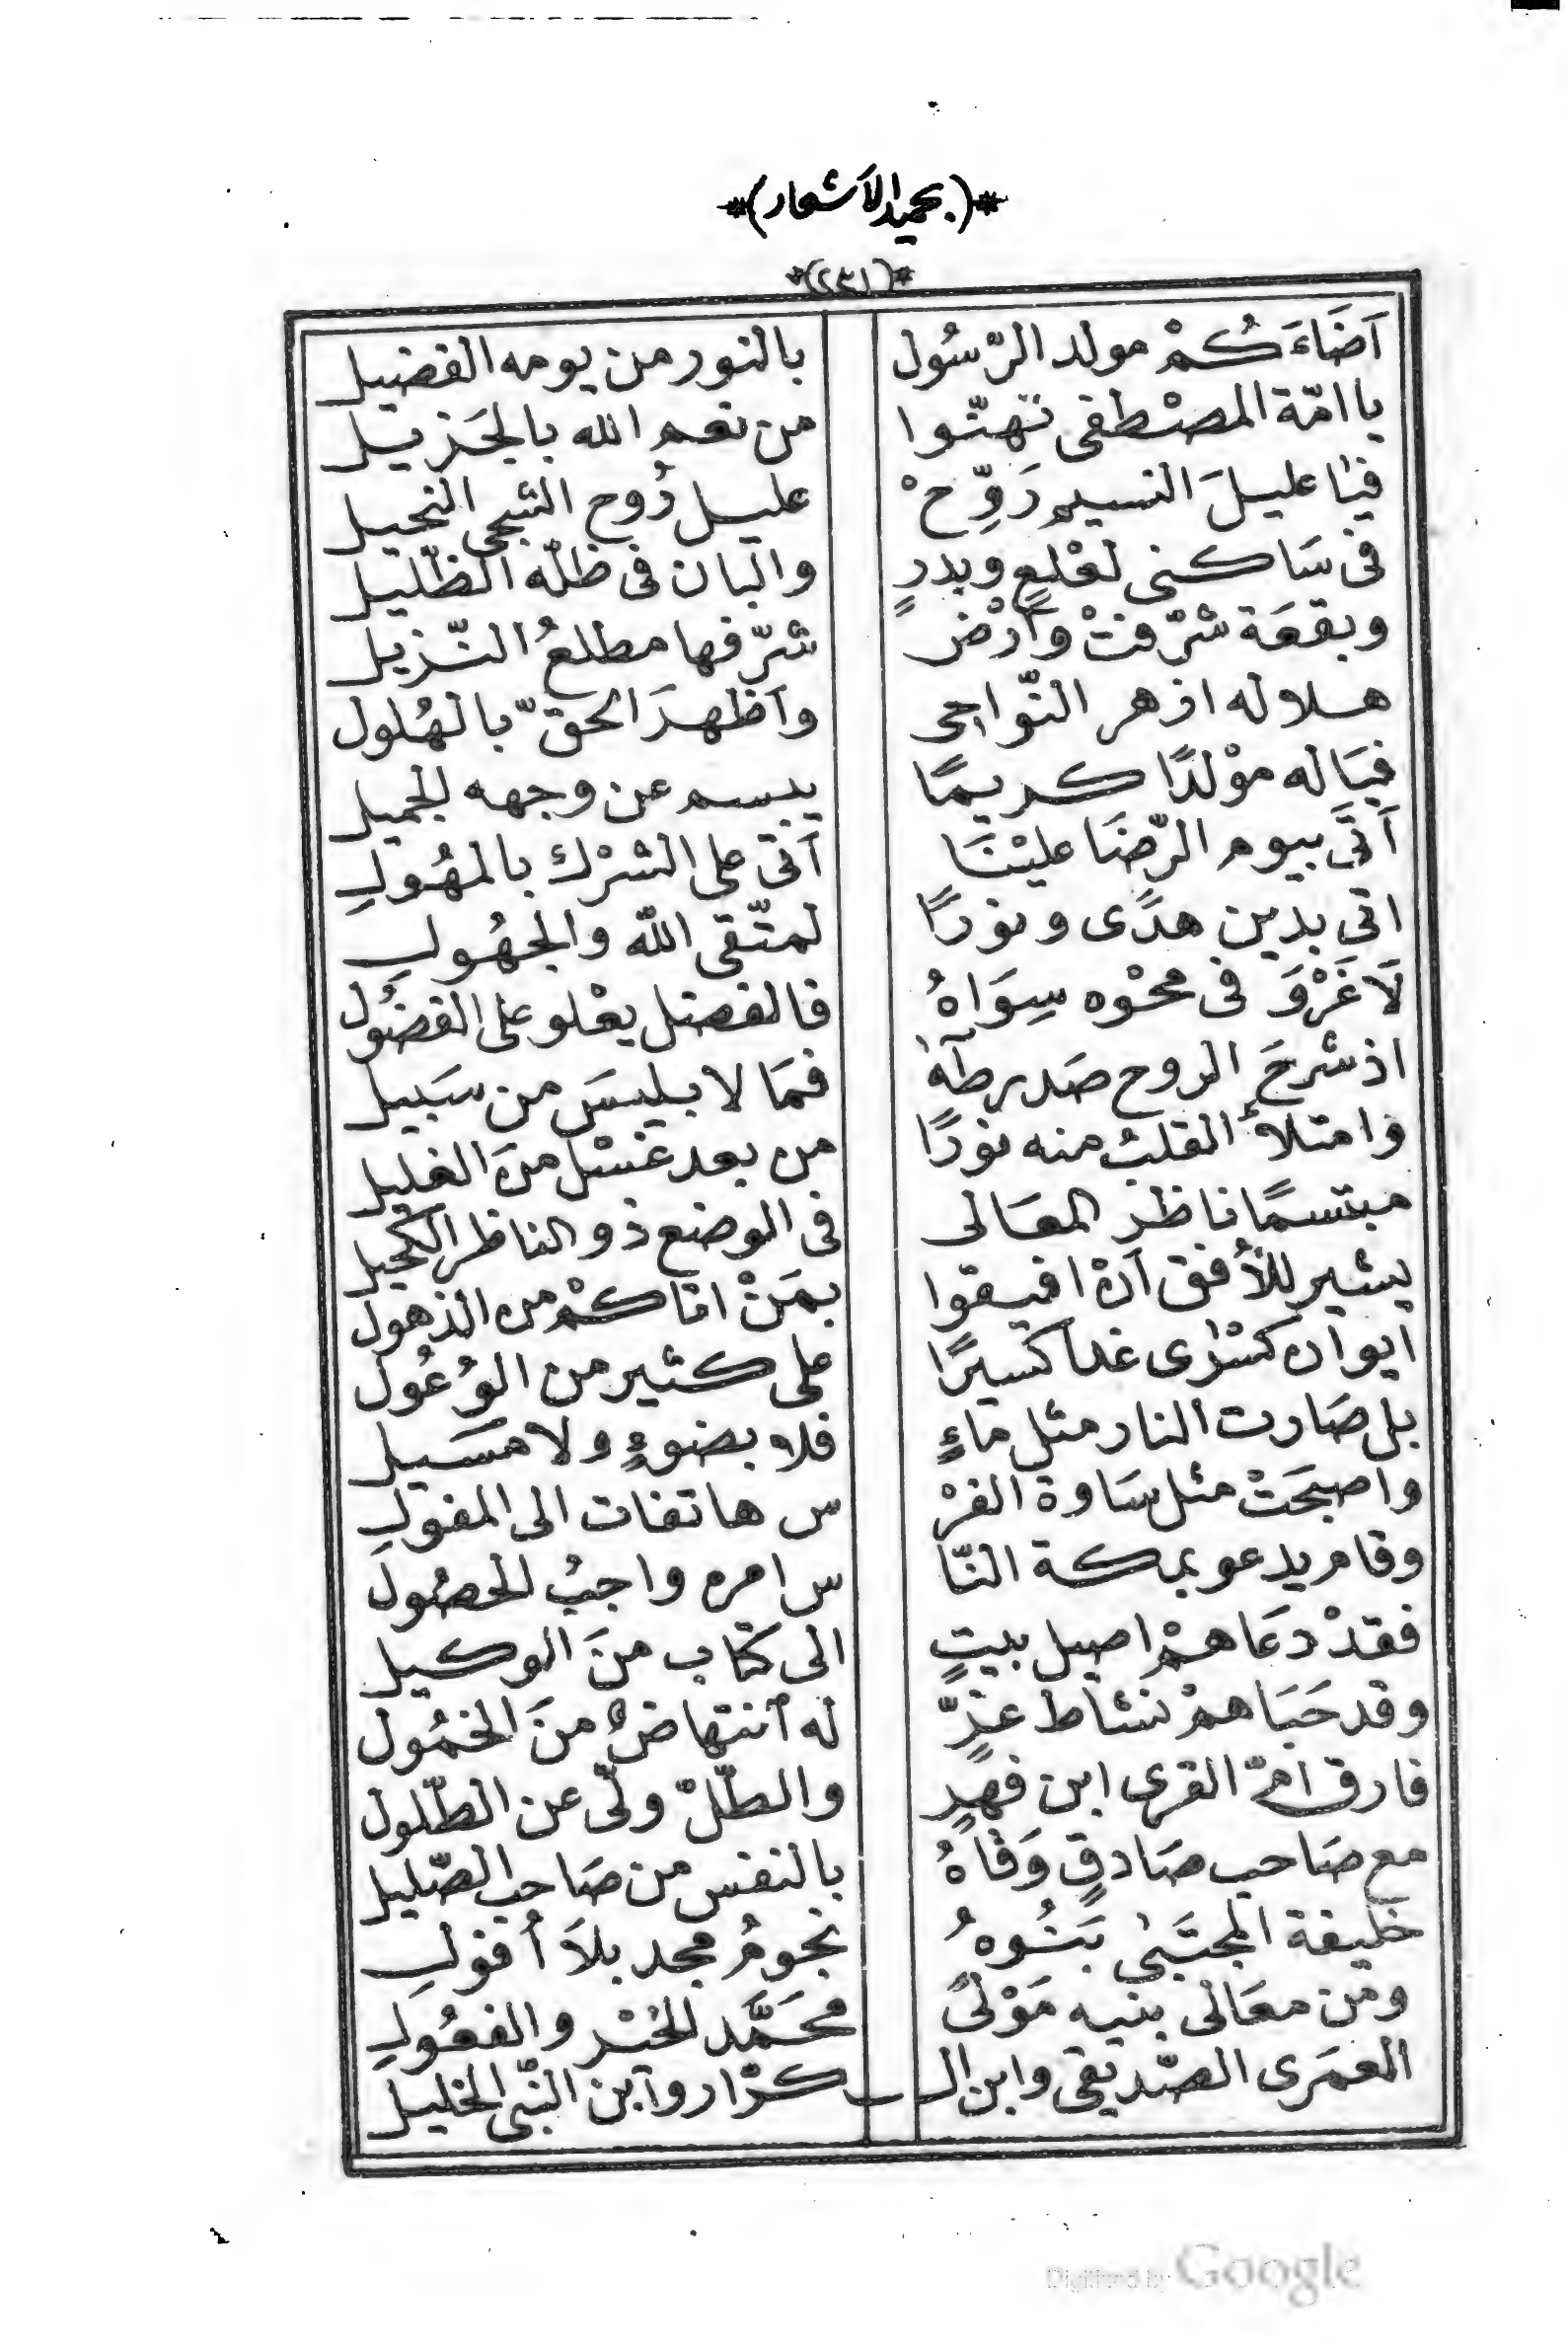 *(بحميد الاَشعار)*
*(٢٣١)*
اَضَاءَ كُمْ مولد الرّسُول بالنور من يومه الفضيل
يا امّة المصْطفى تهنّوا من نعم الله بالجَزيل
فيٰا عليلَ النسيم رَوِّحْ عليل رُوح الشجى النحيل
فى سَاكنى لعْلعٍ وبدرٍ والبان فى ظلّه الظّليل
وبقعَة شرّفتْ وأرْضٍ شرّفها مطلعُ النّزيل
هلاله ازهر النّواحى واَظهرَ الحقّ بالهُلول
فيَاله موْلدًا كريمًا يبسم عن وجهه الجميل
اَتَى بيوم الرّضَا عليْنَا اَتى على الشرْك بالمهُولِ
اتى بدين هدًى ونورًا لمتّقى اللّه والجهُولِ
لَا غَرْوَ فى محْوه سِوَاهُ فالفضل يعْلو على الفضُول
اذ شرحَ الروح صَدر طٰهٰ فمَا لابليسَ من سَبيل
وامتلأ القلبُ منه نورًا من بعد غسْل منَ الغليل
مبتسمًا ناظر المعَالى فى الوضع ذو الناظر الكحيل
يشير للأُفق اَنْ افيقوا بمَنْ اتاكمْ من الذهول
ايوان كسْرٰى غدا كسيرًا على كثير من الوُعُول
بل صَارت النار مثل مَاءٍ فلا بضوءٍ ولا مَسَيل
واصبحَتْ مثل سَاوة الفرْ س هاتفات الى المفولِ
وقام يدعو بمكة النّا س امره واجبُ الحصُول
فقدْ دعَاهمْ اصيل بيتٍ الى كتاب منَ الوكيل
وقد حَبَاهمْ نشاط عزٍّ له انتهاضٌ منَ الخمُول
فارق امّ القرى ابن فهرٍ والطّلّ ولّى عن الطّلول
مع صَاحبٍ صَادقٍ وَقَاهُ بالنفس من صَاحب الصّليل
خليفة المجتَبىٰ بَنُوهُ نجومُ مجد بلاَ أفولِ
ومن معَالى بنيه مَوْلىً محَمَّد الخيْر والفعُولِ
العمَرى الصّديقى وابن الـ ـكرّار وابن النّبى الخليل
Digitized by Google